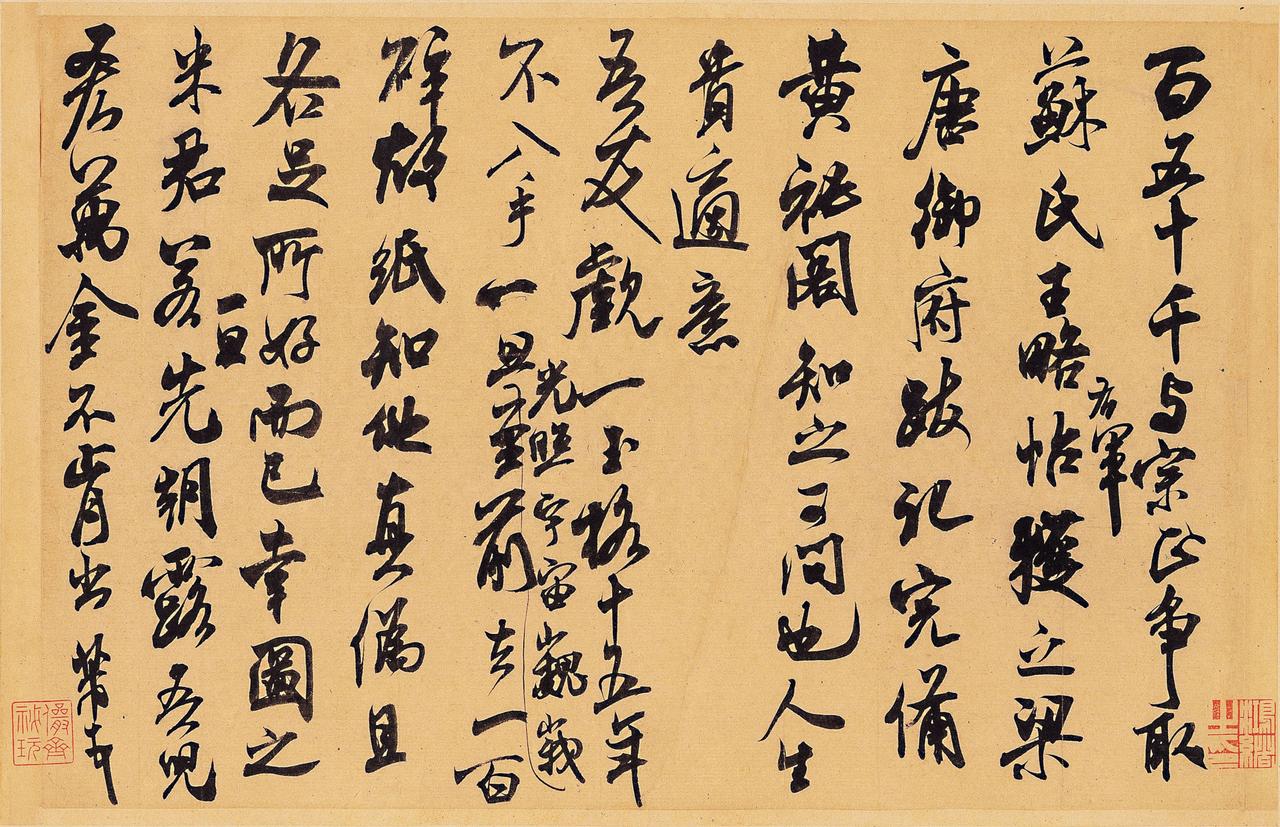 百五十千与宗正爭取
蘇氏王略帖獲之梁
右軍
唐御府跋記完備
黃祕閣知之可問也人生
貴適意
吾友覷一玉格十五年
光照宇宙巍峩
不入手一旦至前去一百
碎故紙知他真偽且
各足所好而已幸圖之
一旦
米君若先朝露吾兒
吝萬金不肯出芾頓首
儼齋祕玩